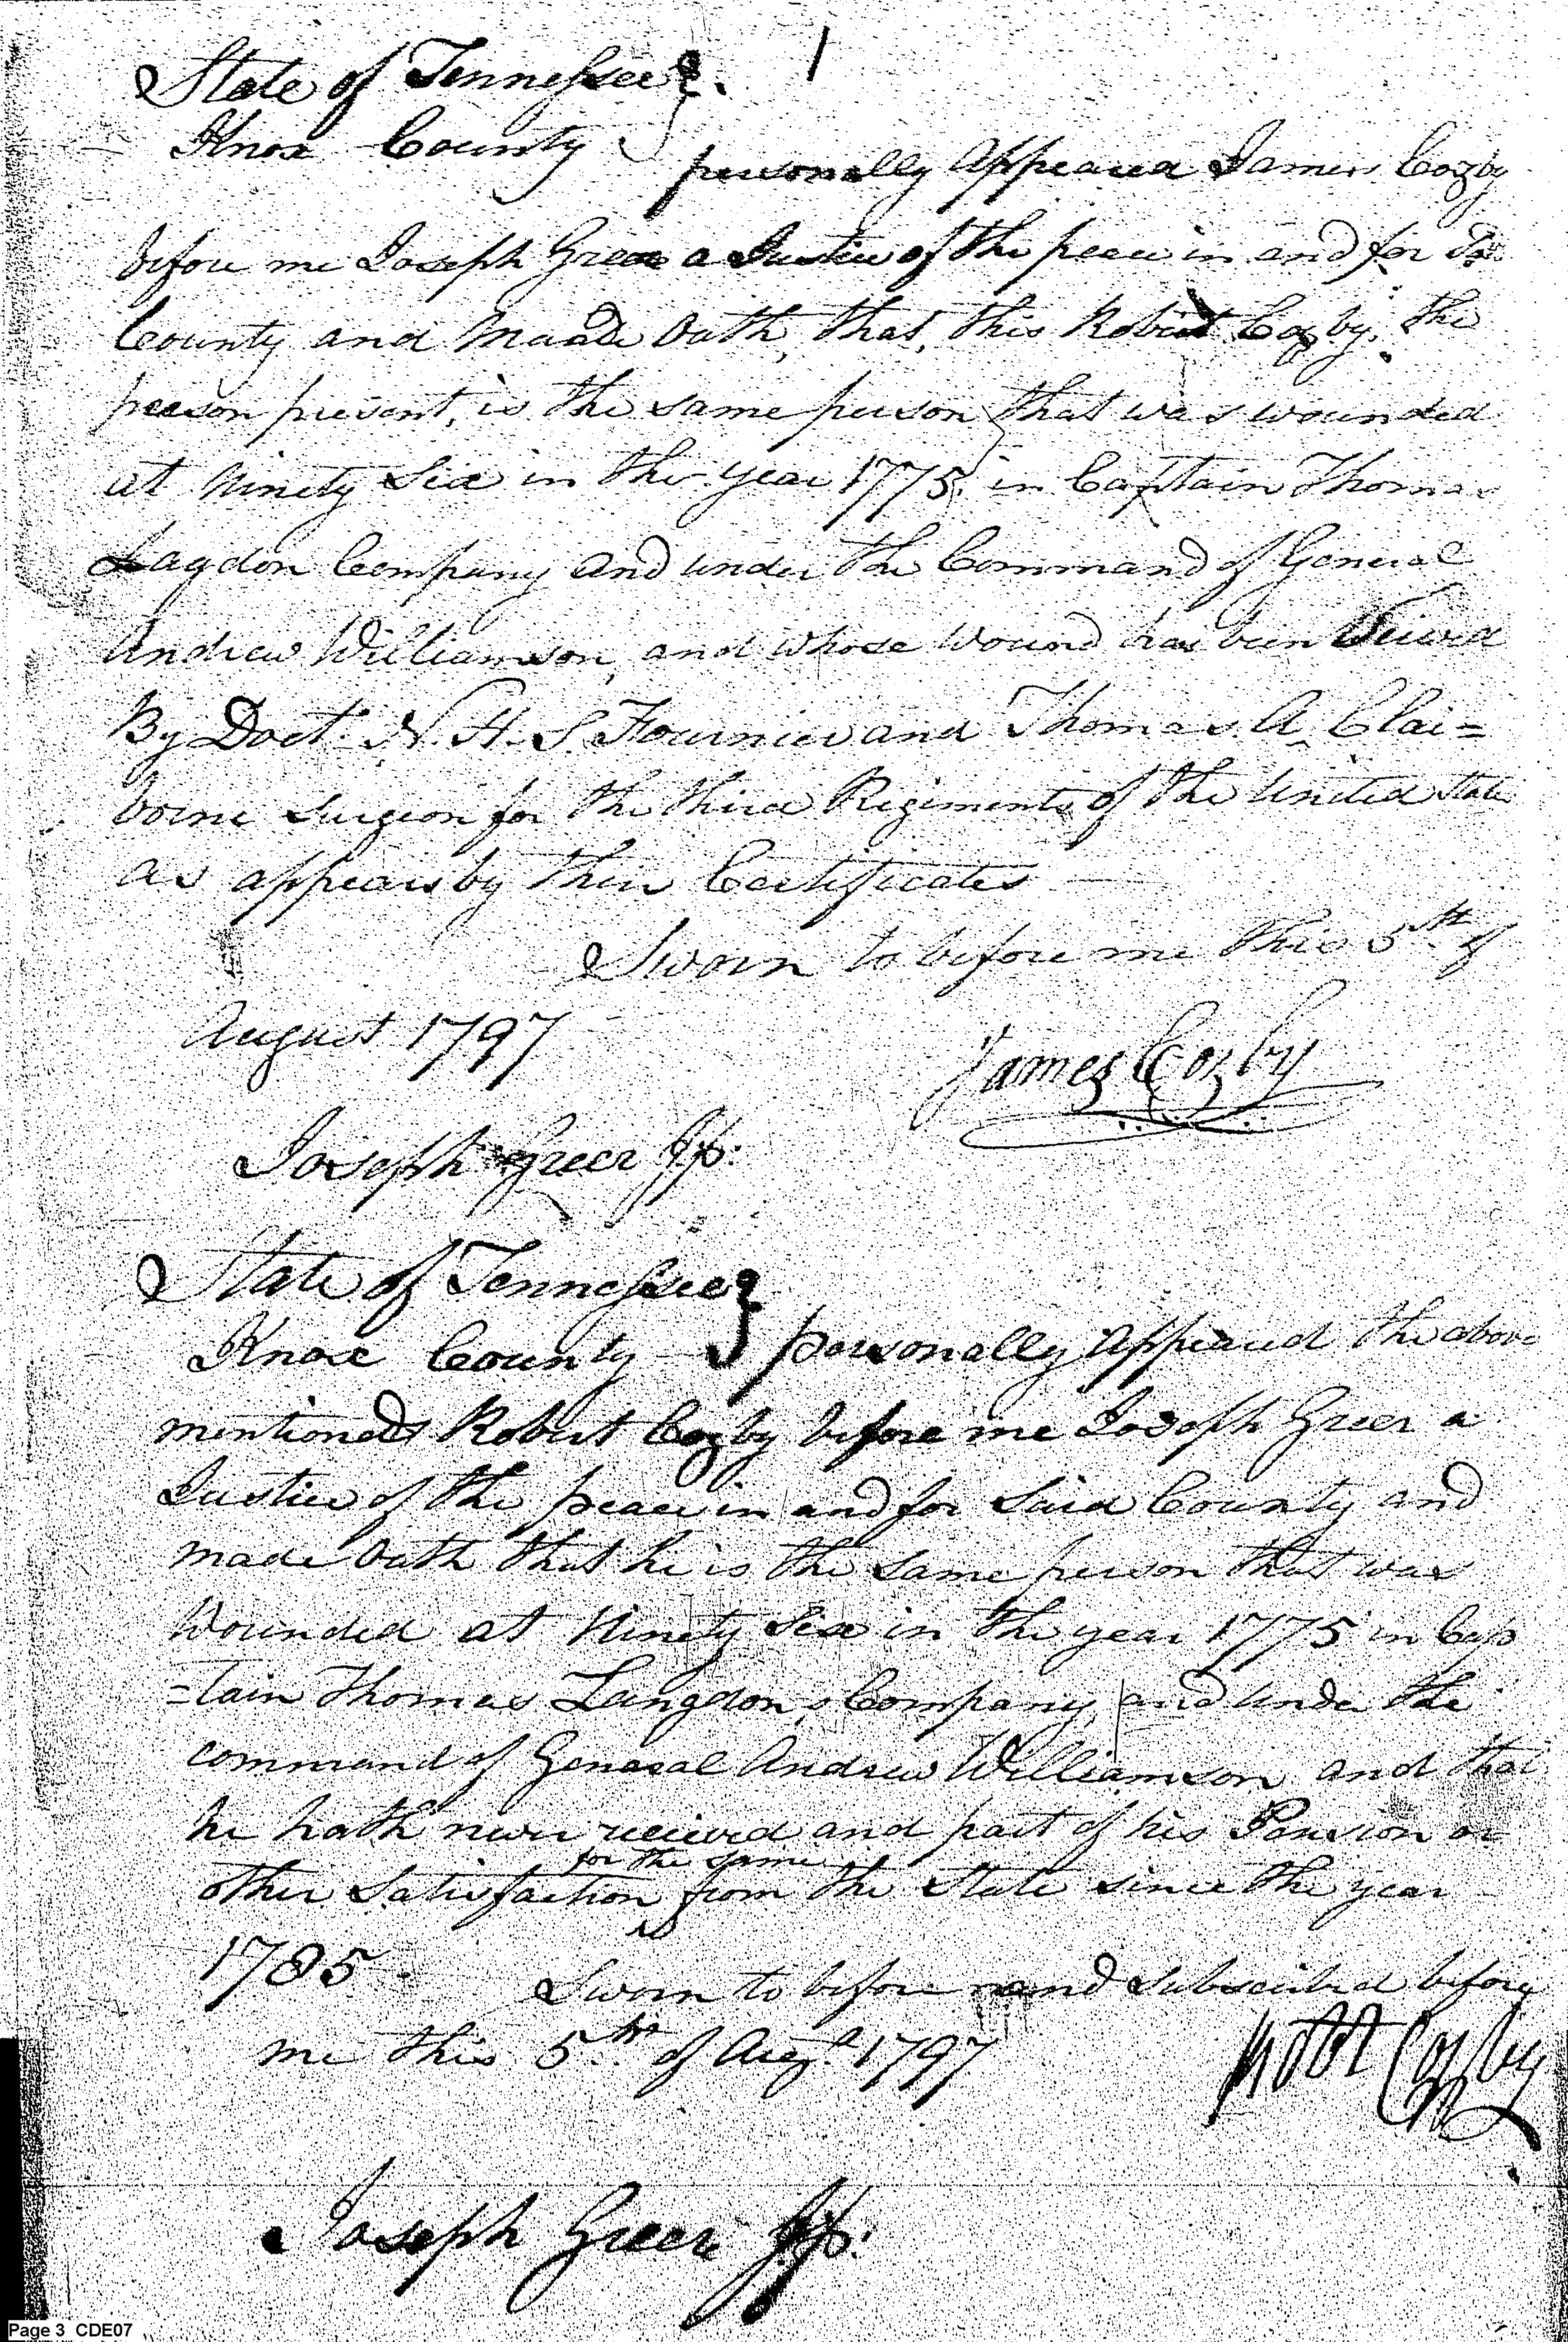 1
State of Tennessee
Knox County personally Appeared James Cozby
before me Joseph Greer a Justice of the peace in and for Sd
County and Maade Oath, that, this Robert Cozby, the
person present, is the same person that was wounded
at Ninety Six in the year 1775, in Captain Thomas
Lagdon Company and under the Command of General
Andrew Williamson, and whose Wound has been
By Doct. N. H. S. Fournier and Thomas. A. Clai=
borne surgeon for the third Regiments of the United State
as appears by thier Certificates
Sworn to before me this 5th of
August 1797
James Cozby
Joseph Greer Jp:
State of Tennessee
Knox County personally appeared the above
mentioned Robert Cozby before me Joseph Greer a
Justice of the peace in and for Said County and
made Oath that he is the same person that was
Wounded at Ninety Six in the year 1775 in Cap
=tain Thomas Langdon,s Company, and under the
command of General Andrew Williamson and that
he hath never recieved and part of his Pension or
for the same
other Satisfaction from the State since the year
1785. Sworn to before and subscribed before
me this 5th of Augt 1797
Robt Cozby
Joseph Greer Jp:
Page 3 CDE07